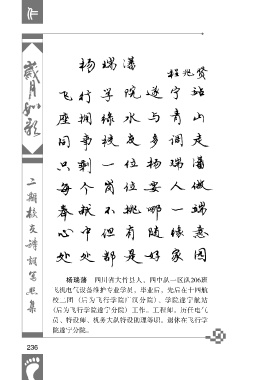 岁月如歌
二期校友诗词笔照集
杨瑞藩
程兆贤
飞行学院遂宁站
座拥绿水与青山
同事校友多调走
只剩一位杨瑞藩
每个岗位要人做
奉献不挑哪一端
心中但有随缘意
处处都是好家园
杨瑞藩 四川省大竹县人,四中队一区队206班
飞机电气设备维护专业学员。毕业后,先后在十四航
校二团(后为飞行学院广汉分院)、学院遂宁航站
(后为飞行学院遂宁分院)工作。工程师。历任电气
员、特设师、机务大队特设助理等职。退休在飞行学
院遂宁分院。
236